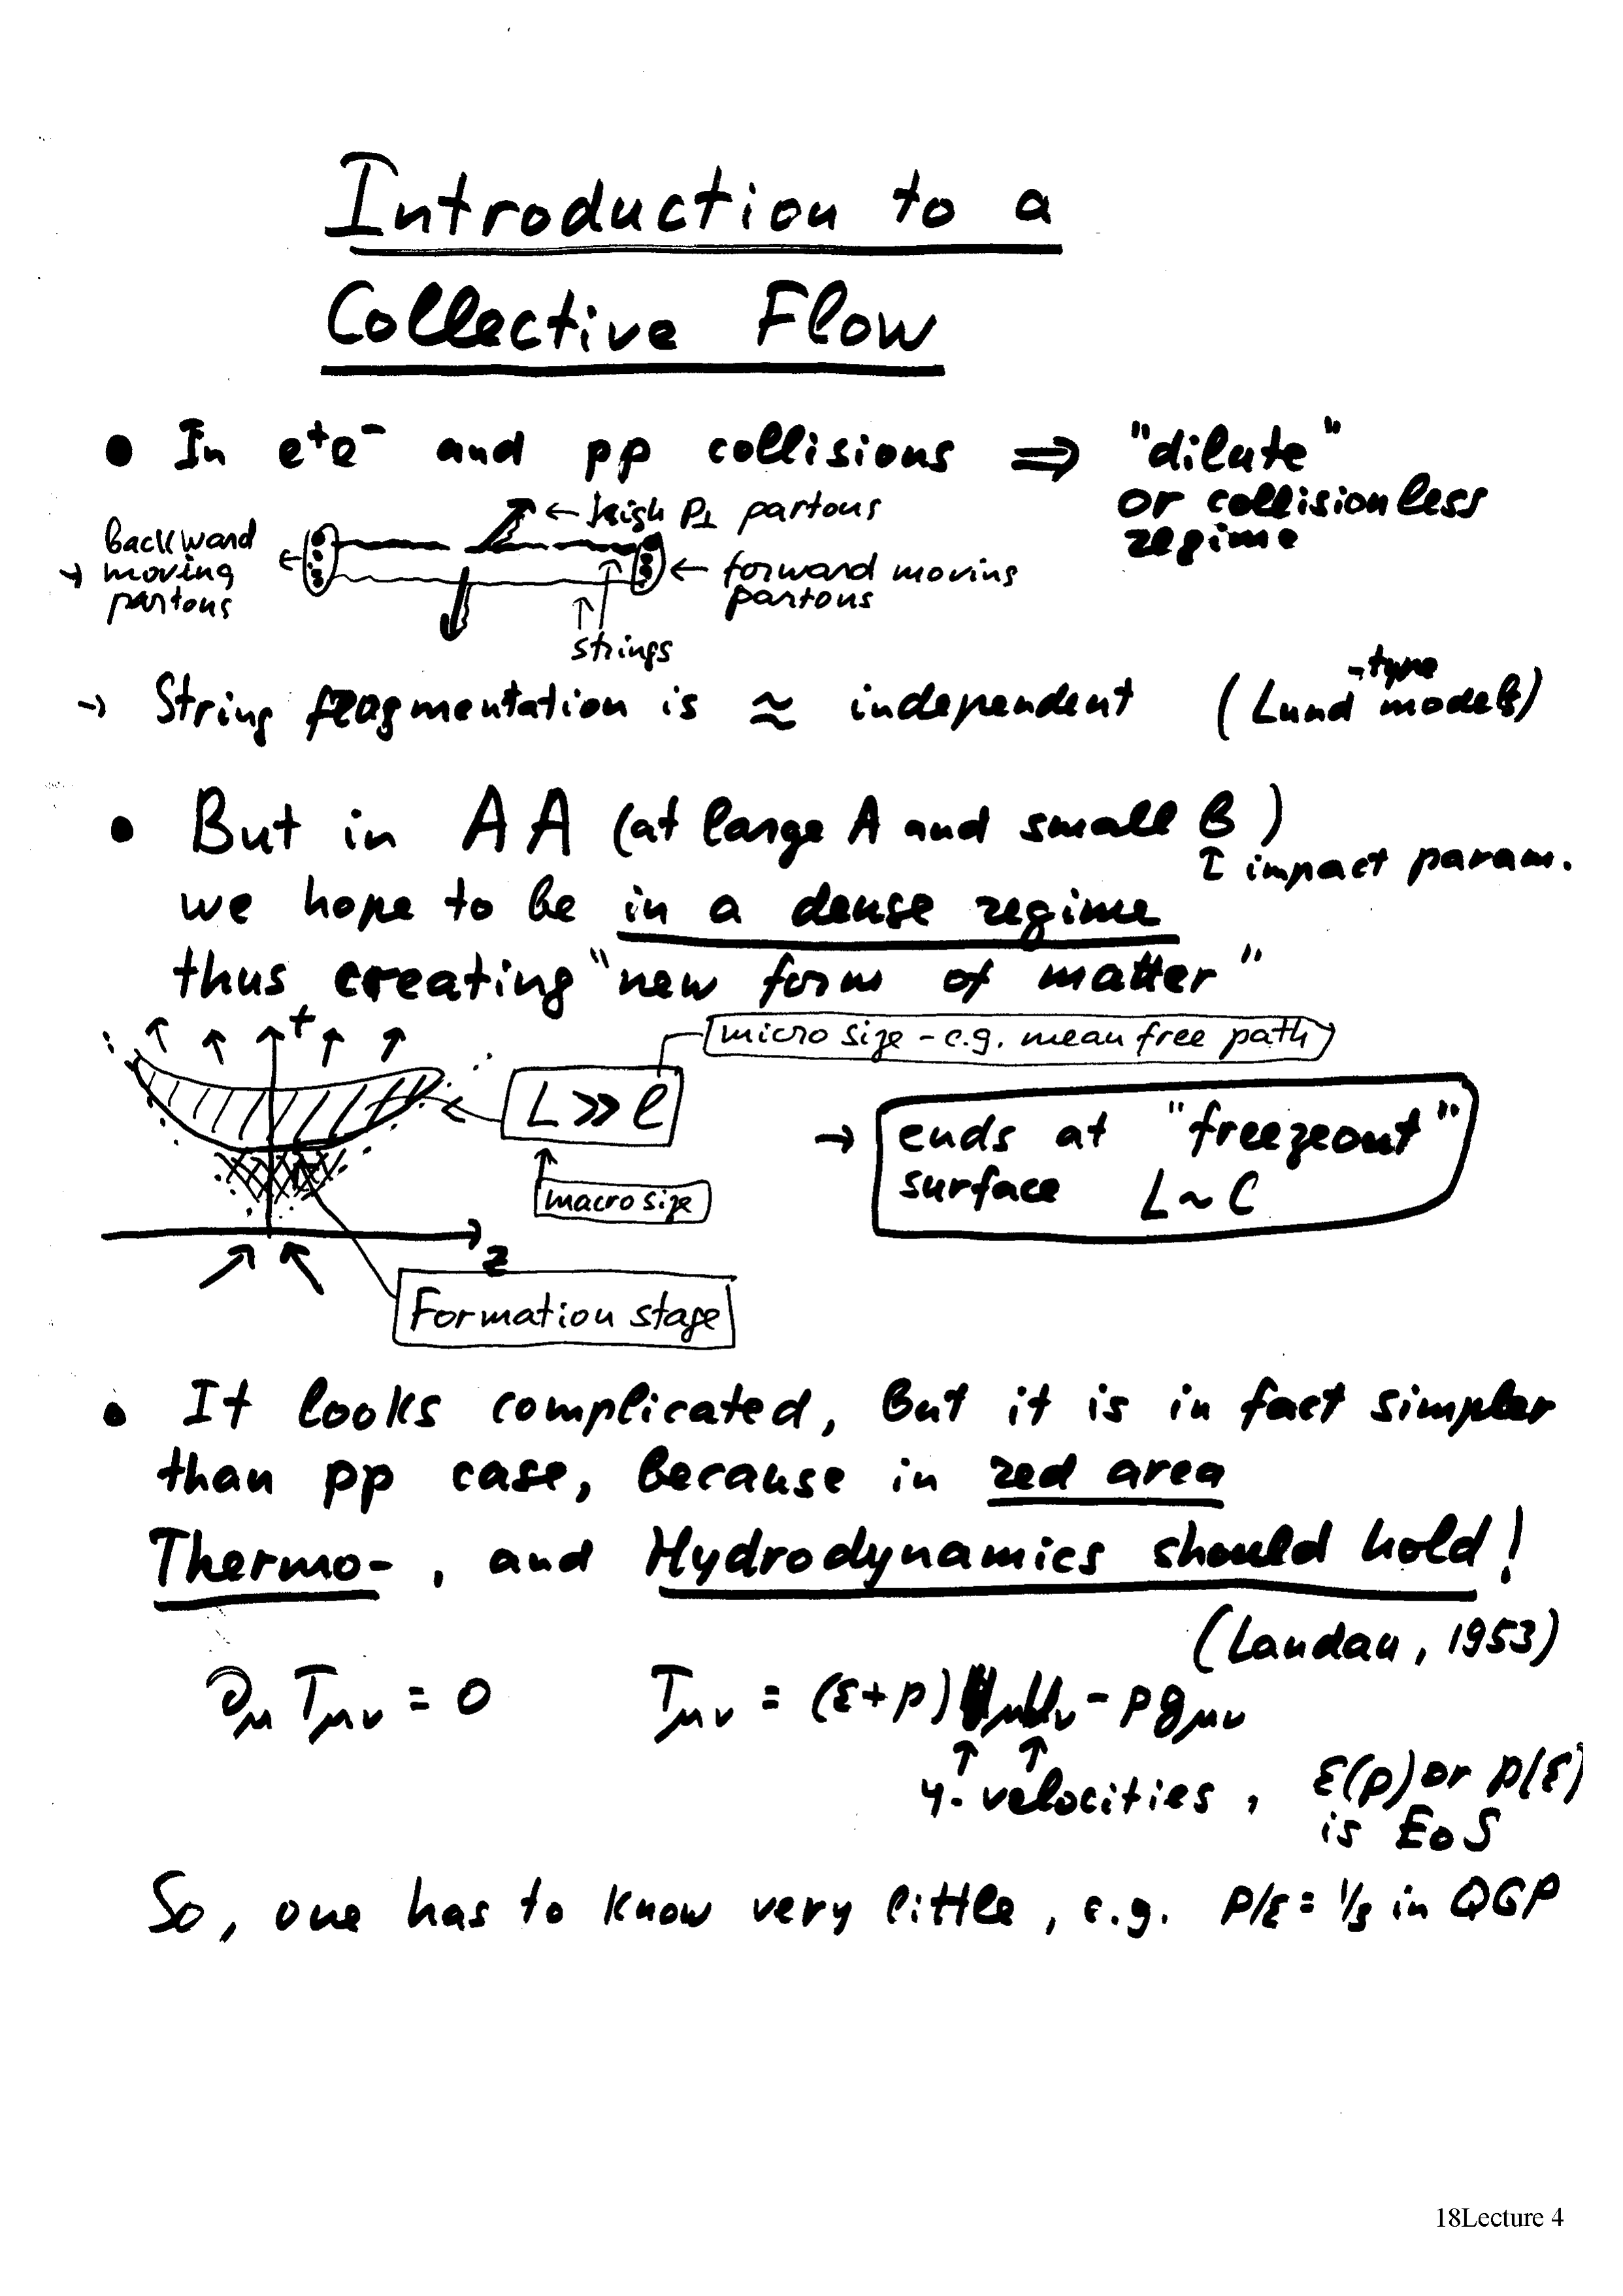 Introduction to a
Collective Flow
• In e⁺e⁻ and pp collisions ⇒ "dilute"
or collisionless
regime
← high p⊥ partons
backward
→ moving
partons
← forward moving
partons
strings
→ String fragmentation is ≈ independent (Lund-type models)
• But in AA (at large A and small b)
↑ impact param.
we hope to be in a dense regime
thus creating "new form of matter"
t
micro size - e.g. mean free path
L >> ℓ
macro size
→ ends at "freezeout"
surface L ~ ℓ
z
Formation stage
• It looks complicated, but it is in fact simpler
than pp case, because in red area
Thermo-, and Hydrodynamics should hold!
(Landau, 1953)
∂μ Tμν = 0 Tμν = (ε+p) uμ uν - p gμν
↑ ↑
4-velocities, ε(p) or p(ε)
is EoS
So, one has to know very little, e.g. p/ε = 1/3 in QGP
18Lecture 4